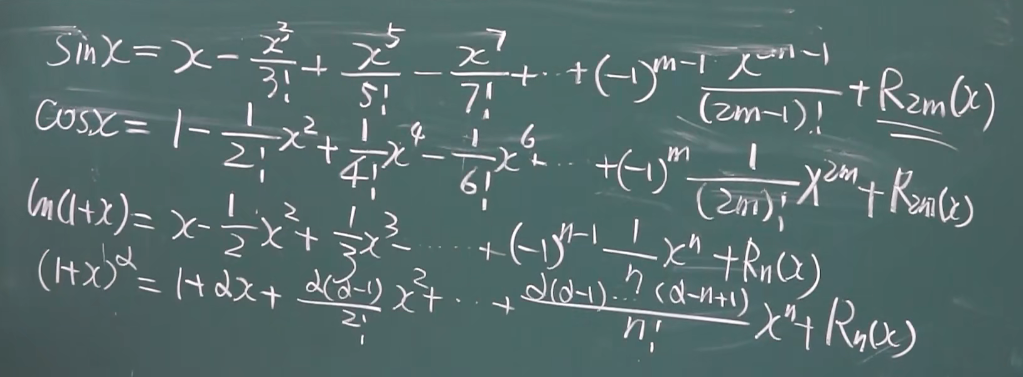 sinx = x - x³/3! + x⁵/5! - x⁷/7! + ··· + (-1)^(m-1) x^(2m-1)/(2m-1)! + R₂ₘ(x)
cosx = 1 - 1/2! x² + 1/4! x⁴ - 1/6! x⁶ + ··· + (-1)^m 1/(2m)! x^(2m) + R₂ₘ(x)
ln(1+x) = x - 1/2 x² + 1/3 x³ - ······ + (-1)^(n-1) 1/n xⁿ + Rₙ(x)
(1+x)^α = 1 + αx + α(α-1)/2! x² + ··· + α(α-1)···(α-n+1)/n! xⁿ + Rₙ(x)